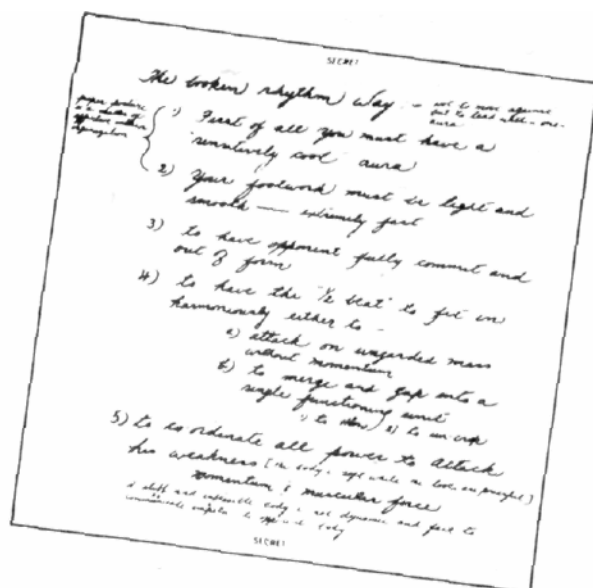 SECRET
The broken rhythm Way - not to move against
but to lead while - one-
aura
proper posture
is a matter of
effective interior
organization
1) First of all you must have a
"sensitively cool" aura
2) Your footwork must be light and
smooth — extremely fast
3) to have opponent fully commit and
out of form
4) to have the "1/2 beat" to fit in
harmoniously either to -
a) attack on ungarded mass
without momentum
b) to merge and gap into a
single functioning unit
1) to 2) to un-crop
5) to co ordinate all power to attack
his weakness [the body is soft while the bones are powerful]
momentum & muscular force
and body is not dynamic and fast to
body
SECRET